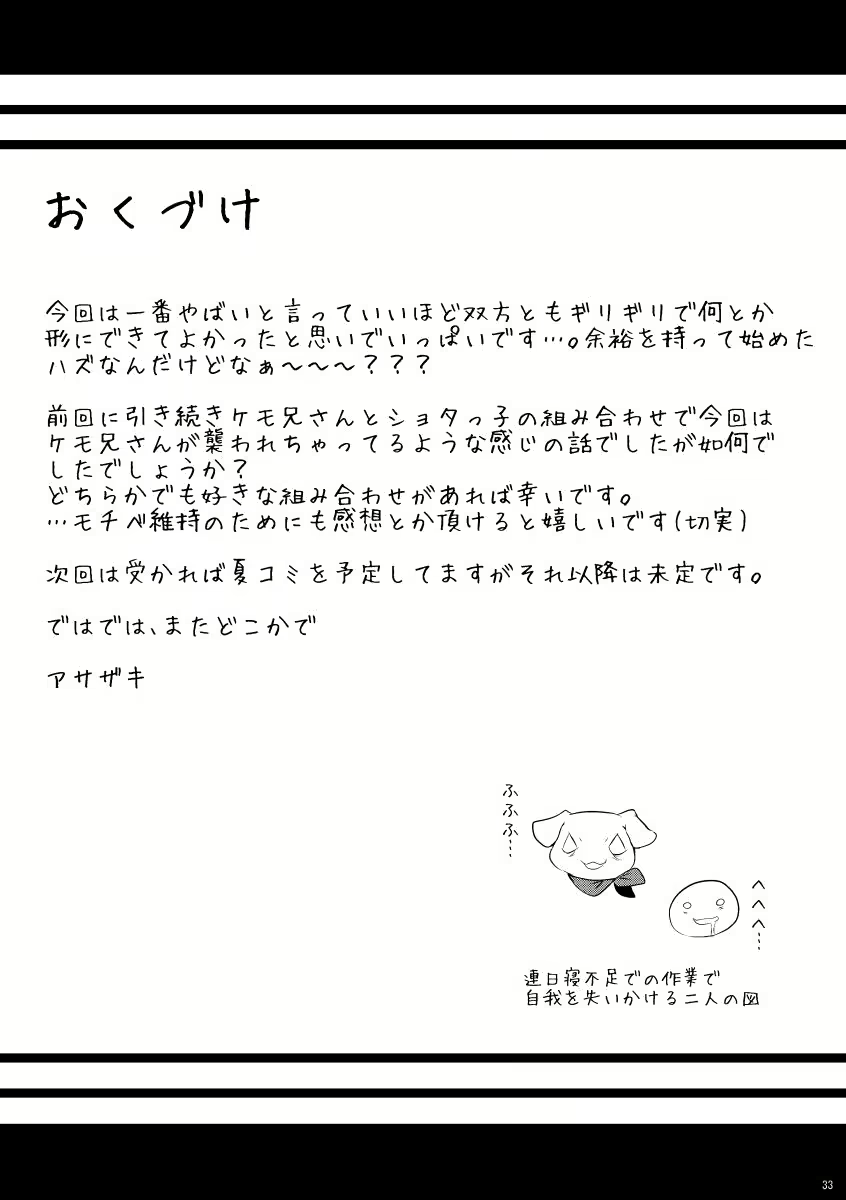 おくづけ
今回は一番やばいと言っていいほど双方ともギリギリで何とか
形にできてよかったと思いでいっぱいです…。余裕を持って始めた
ハズなんだけどなぁ～～～？？？
前回に引き続きケモ兄さんとショタっ子の組み合わせで今回は
ケモ兄さんが襲われちゃってるような感じの話でしたが如何で
したでしょうか？
どちらかでも好きな組み合わせがあれば幸いです。
…モチベ維持のためにも感想とか頂けると嬉しいです(切実)
次回は受かれば夏コミを予定してますがそれ以降は未定です。
ではでは、またどこかで
アサザキ
ふふふ…
へへへ…
連日寝不足での作業で
自我を失いかける二人の図
33